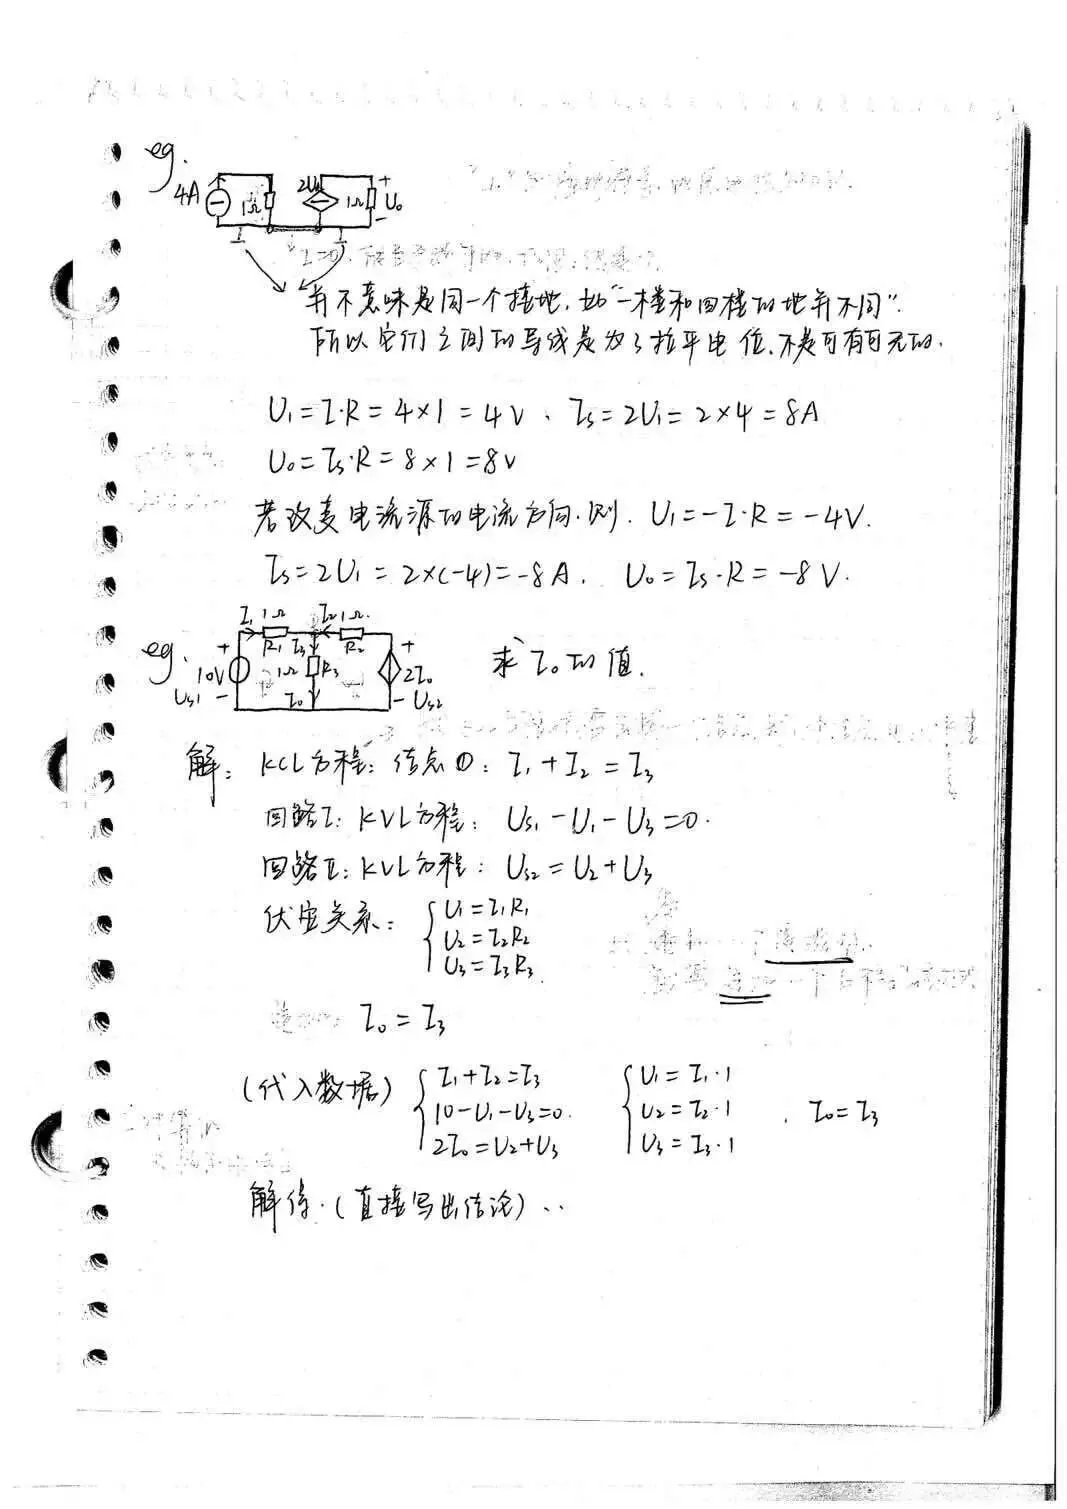 eg.
4A 1Ω 2U₁ 1Ω + U₀ −
并不意味是同一个接地，如“一楼和四楼的地并不同”.
所以它们之间的导线是为了拉平电位，不是可有可无的.
U₁=I·R=4×1=4V、I₅=2U₁=2×4=8A
U₀=I₅·R=8×1=8V
若改变电流源的电流方向，则. U₁=-I·R=-4V.
I₅=2U₁=2×(-4)=-8A. U₀=I₅·R=-8V.
eg.
I₁ 1Ω I₂ 1Ω
+ R₁ I₃ R₂ +
10V 1Ω R₃ 2I₀
Us1 − I₀ − Us2
求I₀的值.
解: KCL方程: 结点①: I₁+I₂=I₃
回路I: KVL方程: Us₁-U₁-U₃=0.
回路Ⅱ: KVL方程: Us2=U₂+U₃
伏安关系: { U₁=I₁R₁
U₂=I₂R₂
U₃=I₃R₃.
I₀=I₃
(代入数据) { I₁+I₂=I₃ { U₁=I₁·1
10-U₁-U₃=0. U₂=I₂·1 . I₀=I₃
2I₀=U₂+U₃ U₃=I₃·1
解得.(直接写出结论)..